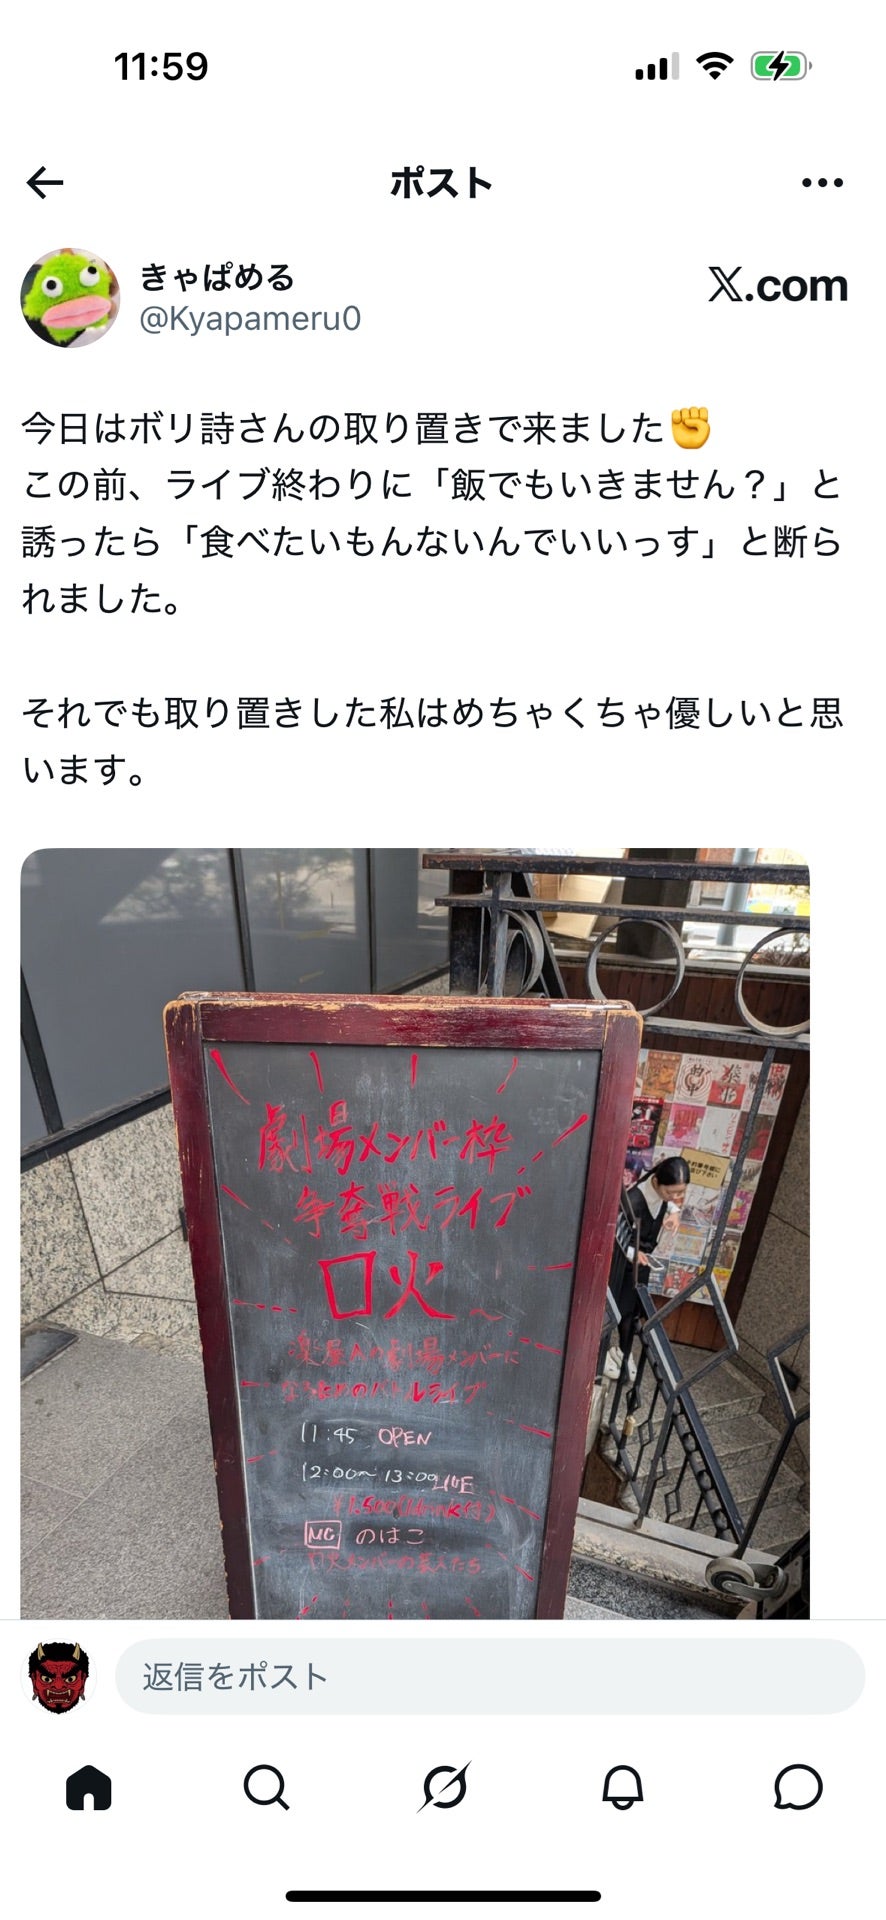 11:59
ポスト
きゃぱめる
@Kyapameru0
X.com
今日はボリ詩さんの取り置きで来ました✊
この前、ライブ終わりに「飯でもいきません？」と
誘ったら「食べたいもんないんでいいっす」と断ら
れました。
それでも取り置きした私はめちゃくちゃ優しいと思
います。
劇場メンバー枠
争奪戦ライブ
口火
楽屋Aの劇場メンバーに
なるためのバトルライブ
11:45 OPEN
12:00~13:00 LIVE
¥1,500(1drink付)
MC のはこ
口火メンバーの芸人たち
返信をポスト